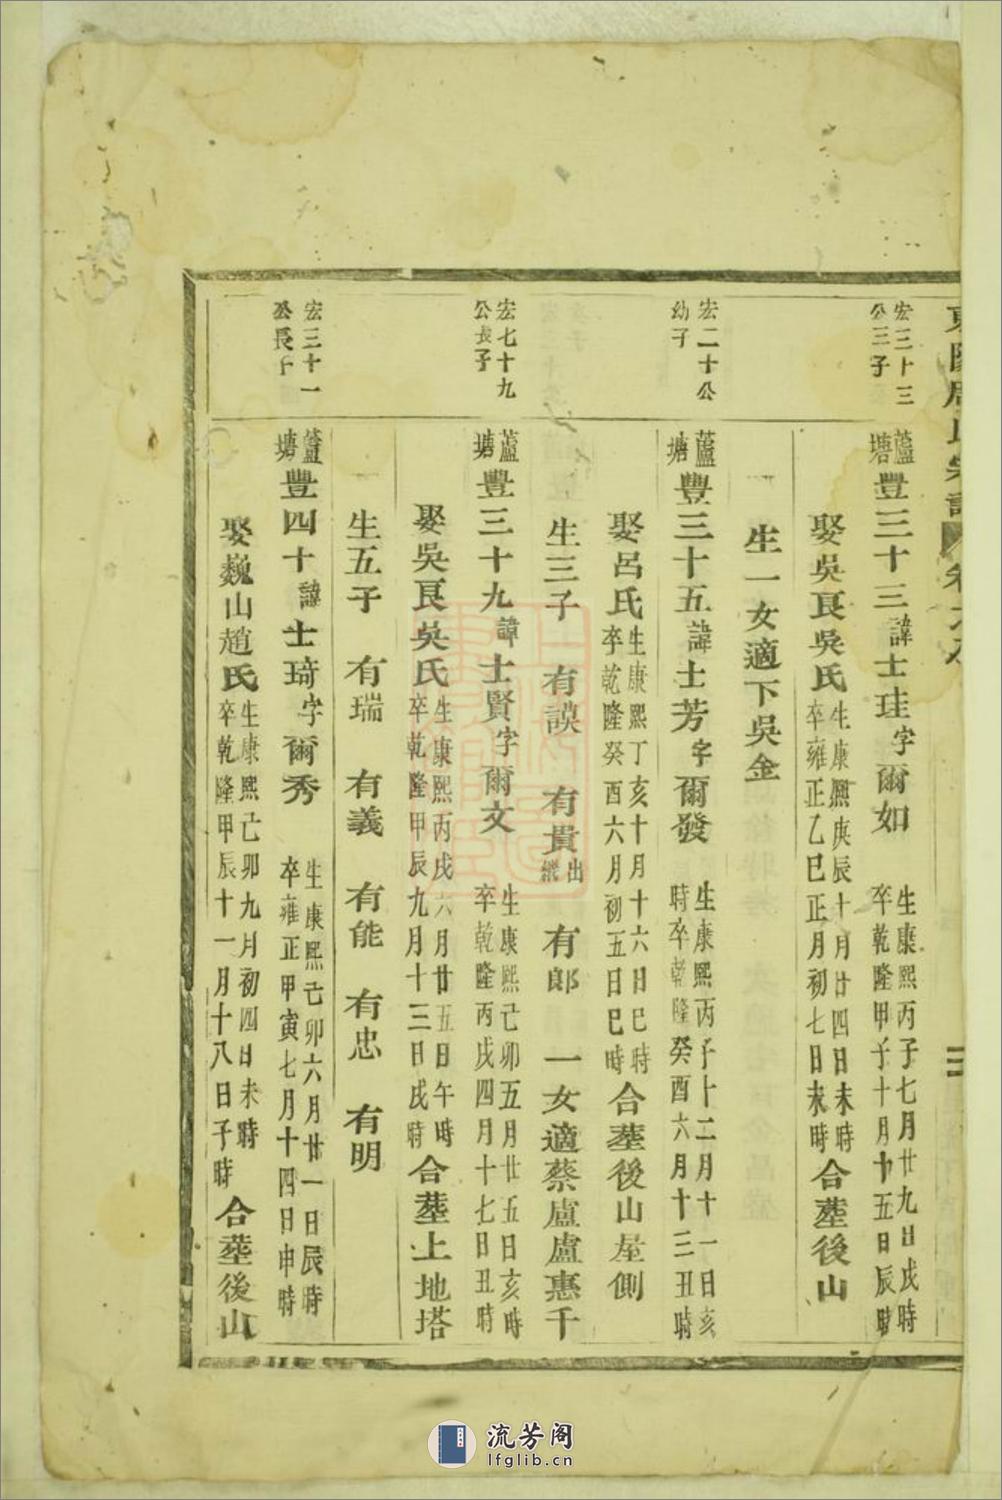 東陽周氏宗譜 卷之
宏三十三
公三子
蘆塘豐三十三諱士珪字爾如 生康熙丙子七月廿九日戌時
卒乾隆甲子十月十五日辰時
娶吳良吳氏 生康熙庚辰十月廿四日未時
卒雍正乙巳正月初七日未時 合塟後山
生一女適下吳金
宏二十公
幼子
蘆塘豐三十五諱士芳字爾發 生康熙丙子十二月十一日亥
時卒乾隆癸酉六月十三丑時
娶呂氏 生康熙丁亥十月十六日巳時
卒乾隆癸酉六月初五日巳時 合塟後山屋側
生三子 有謨 有貴出繼 有郎 一女適蔡盧盧惠千
宏七十九
公長子
蘆塘豐三十九諱士賢字爾文 生康熙己卯五月廿五日亥時
卒乾隆丙戌四月十七日丑時
娶吳良吳氏 生康熙丙戌六月廿五日午時
卒乾隆甲辰九月十三日戌時 合塟上地塔
生五子 有瑞 有義 有能 有忠 有明
宏三十一
公長子
蘆塘豐四十諱士琦字爾秀 生康熙己卯六月廿一日辰時
卒雍正甲寅七月十四日申時
娶巍山趙氏 生康熙己卯九月初四日未時
卒乾隆甲辰十一月十八日子時 合塟後山
流芳阁
lfglib.cn